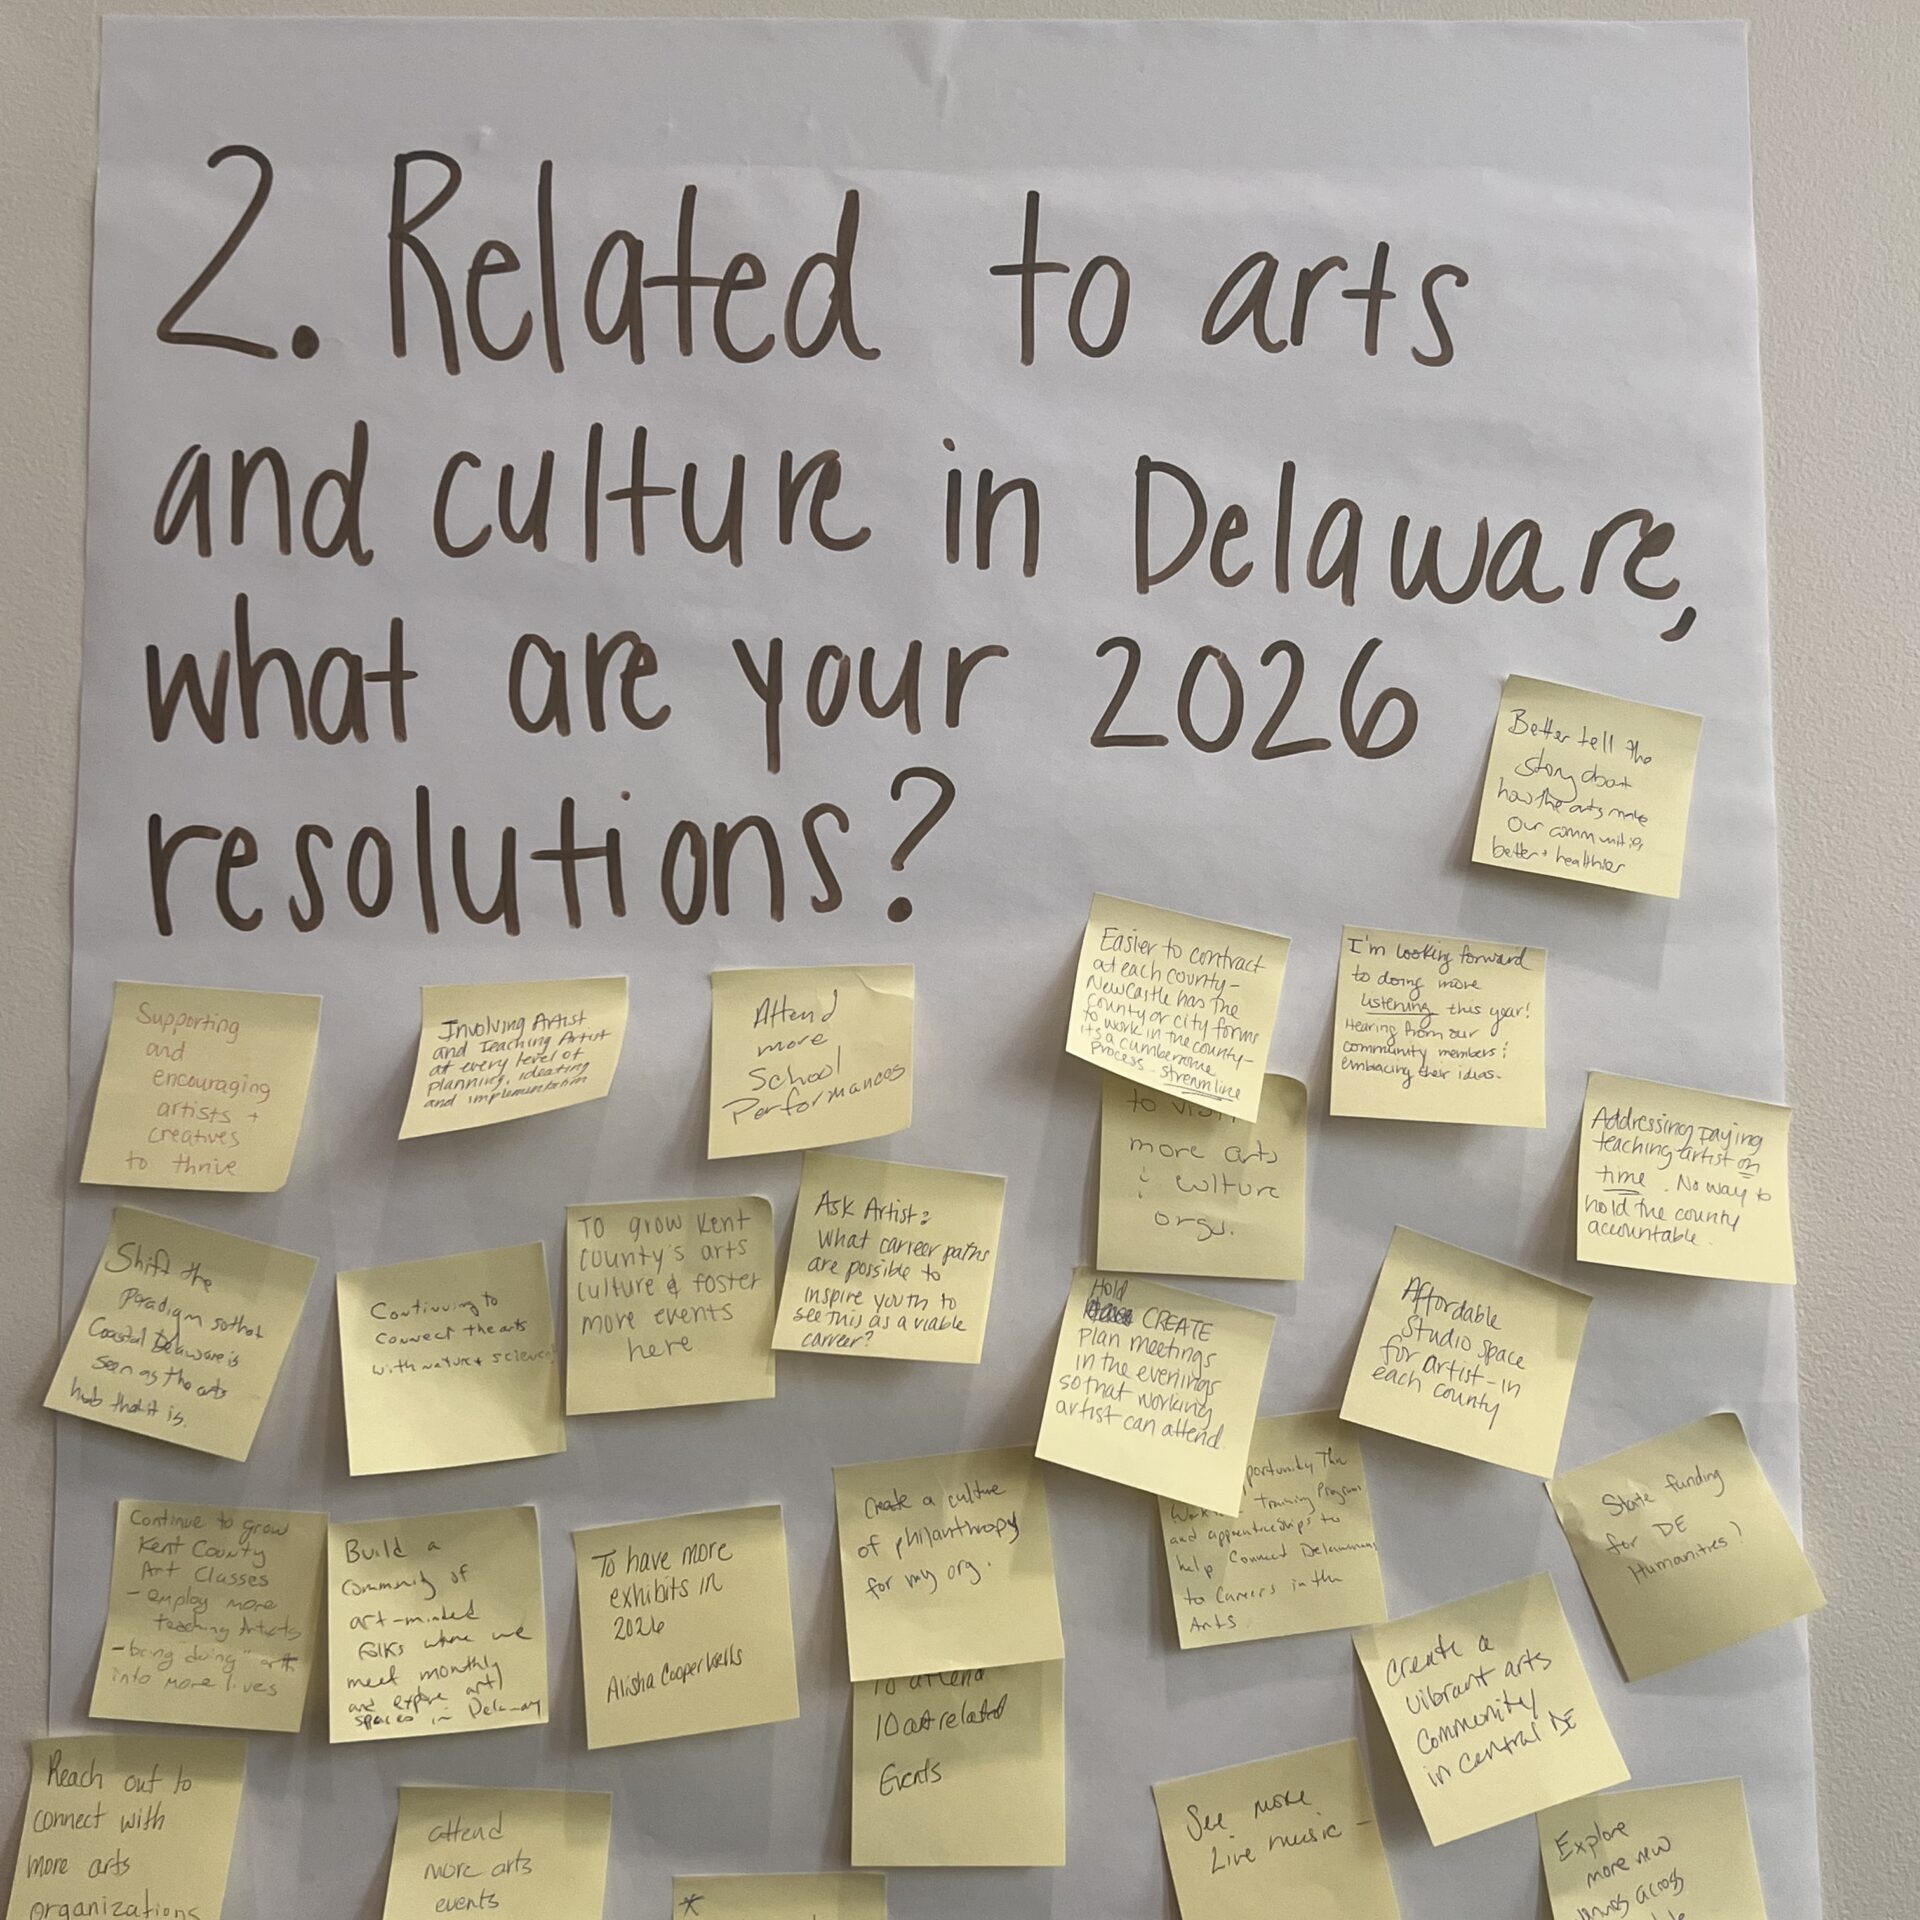 2. Related to arts
and culture in Delaware,
what are your 2026
resolutions?
Better tell the
story about
how the arts make
our communities
better + healthier
Easier to contract
at each county-
New Castle has the
county or city forms
to work in the county-
it's a cumbersome
process - streamline
I'm looking forward
to doing more
listening this year!
Hearing from our
community members &
embracing their ideas.
Supporting
and
encouraging
artists +
creatives
to thrive
Involving Artist
and Teaching Artist
at every level of
planning, ideating
and implementation
Attend
more
School
Performances
to visit
more arts
& culture
orgs.
Addressing paying
teaching artist on
time. No way to
hold the county
accountable.
Shift the
paradigm so that
Coastal Delaware is
seen as the arts
hub that it is.
Continuing to
connect the arts
with nature + science!
To grow Kent
County's arts
culture & foster
more events
here.
Ask Artist:
What carreer paths
are possible to
inspire youth to
see this as a viable
career?
Hold
CREATE
plan meetings
in the evenings
so that working
artist can attend.
Affordable
Studio space
for artist - in
each county
Continue to grow
Kent County
Art Classes
- employ more
teaching Artists
- bring "doing" art
into more lives
Build a
community of
art-minded
folks where we
meet monthly
and explore art
spaces in Delaway
To have more
exhibits in
2026
Alisha Cooper Wells
Create a culture
of philanthropy
for my org.
To attend
10 art related
Events
Training Program
and apprenticeships to
help Connect Delawareans
to Careers in the
Arts.
State funding
for DE
Humanities?
Create a
vibrant arts
community
in central DE
Reach out to
connect with
more arts
organizations
attend
more arts
events
*
See more
Live music -
Explore
more new
across